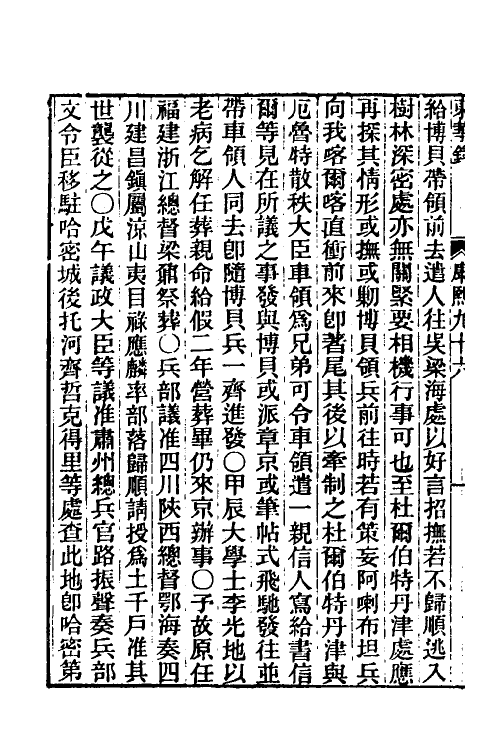 東華錄 康熙九十六 一
給博貝帶領前去遣人往吳梁海處以好言招撫若不歸順逃入
樹林深密處亦無關緊要相機行事可也至杜爾伯特丹津處應
再探其情形或撫或勦博貝領兵前往時若有策妄阿喇布坦兵
向我喀爾喀直衝前來卽著尾其後以牽制之杜爾伯特丹津與
厄魯特散秩大臣車領爲兄弟可令車領遣一親信人寫給書信
爾等見在所議之事發與博貝或派章京或筆帖式飛馳發往並
帶車領人同去卽隨博貝兵一齊進發〇甲辰大學士李光地以
老病乞解任葬親命給假二年營葬畢仍來京辦事〇子故原任
福建浙江總督梁鼐祭葬〇兵部議准四川陝西總督鄂海奏四
川建昌鎭屬涼山夷目祿應麟率部落歸順請授爲土千戶准其
世襲從之〇戊午議政大臣等議准肅州總兵官路振聲奏兵部
文令臣移駐哈密城後托河齊哲克得里等處查此地卽哈密第